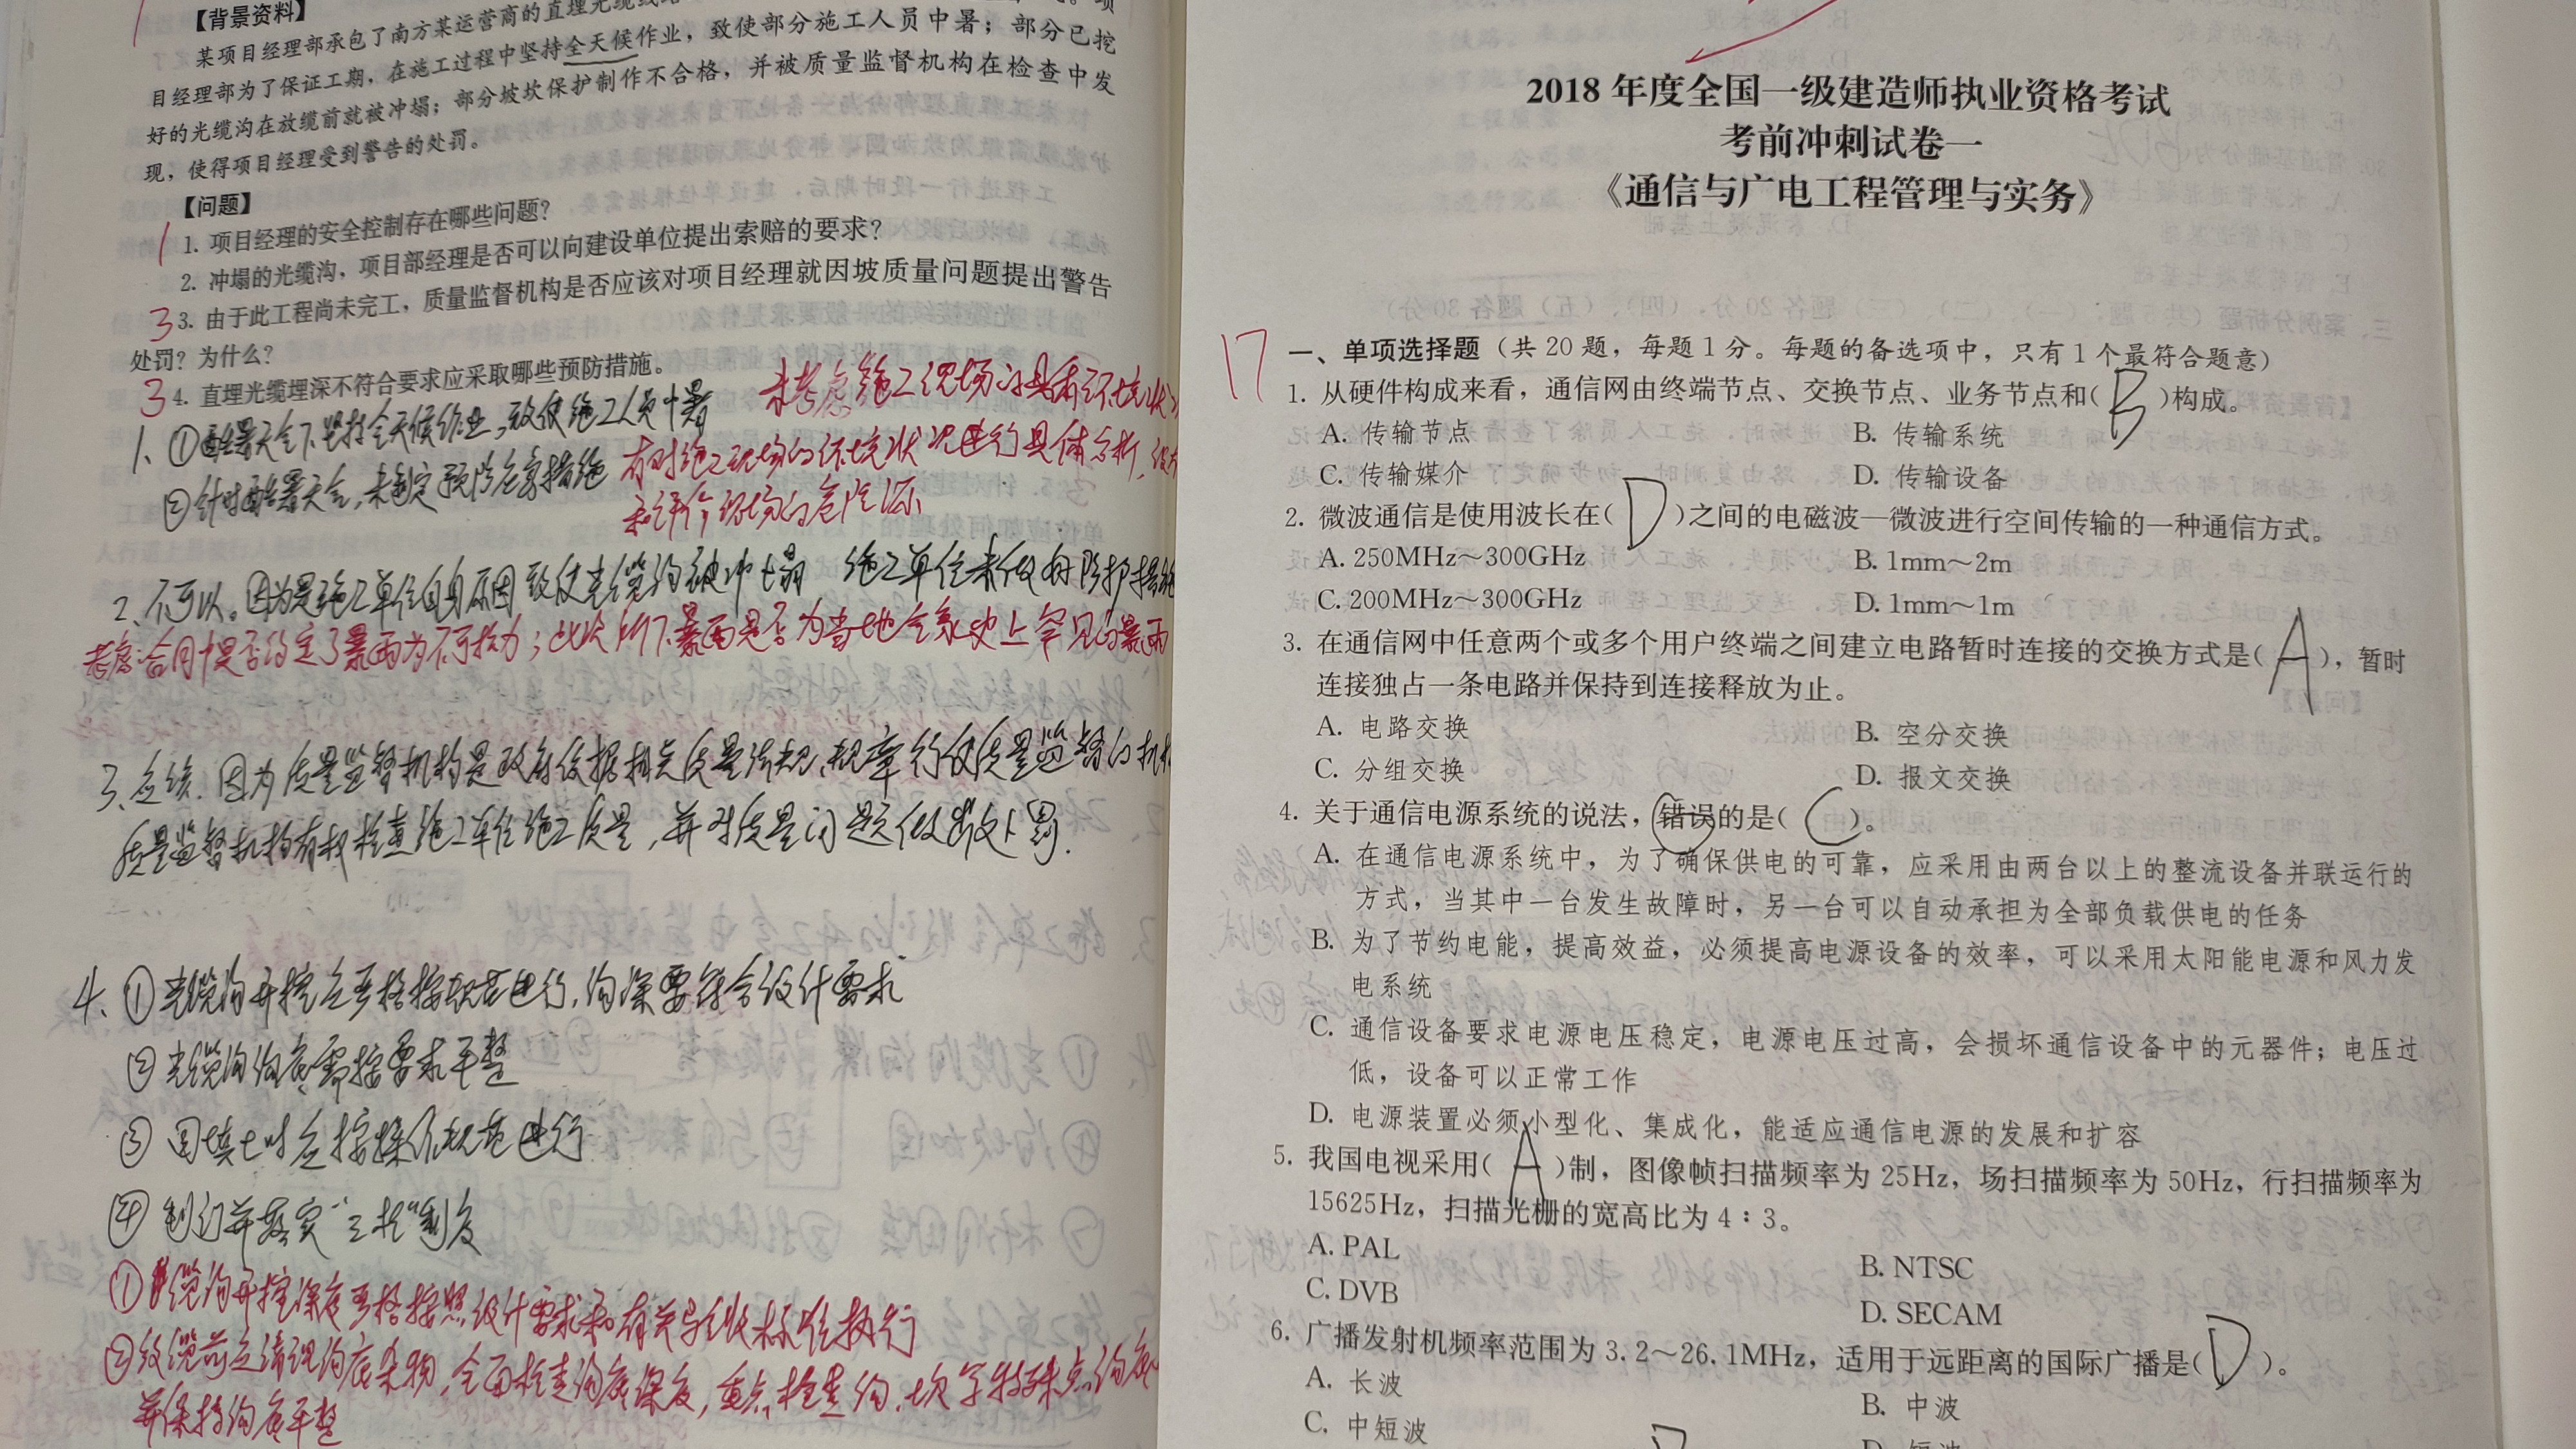 【背景资料】
某项目经理部承包了南方某运营商的直埋光缆线路
目经理部为了保证工期，在施工过程中坚持全天候作业，致使部分施工人员中暑；部分已挖
好的光缆沟在放缆前就被冲塌；部分坡坎保护制作不合格，并被质量监督机构在检查中发
现，使得项目经理受到警告的处罚。
【问题】
1 1. 项目经理的安全控制存在哪些问题？
2. 冲塌的光缆沟，项目部经理是否可以向建设单位提出索赔的要求？
3 3. 由于此工程尚未完工，质量监督机构是否应该对项目经理就因坡质量问题提出警告
处罚？为什么？
3 4. 直埋光缆埋深不符合要求应采取哪些预防措施。
未考虑施工现场的具有环境状
1、①酷暑天气下坚持全天候作业，致使施工人员中暑
有对施工现场的环境状况进行具体分析，
②针对酷暑天气，未制定预防危害措施
和评价现场的危险源
2、不可以。因为是施工单位自身原因致使光缆沟被冲塌 施工单位未做好防护措施
考虑：合同中是否约定了暴雨为不可抗力；此次所下暴雨是否为当地气象史上罕见的暴雨
3、应该．因为质量监督机构是政府依据相关质量法规、规章行使质量监督的机构
质量监督机构有权检查施工单位施工质量，并对质量问题做出处罚．
4、①光缆沟开挖应严格按规范进行，沟深要符合设计要求
②光缆沟沟底需按要求平整
③回填土时应按操作规范进行
④制订并落实“三检”制度
①缆沟开挖深度严格按照设计要求和有关验收标准执行
②放缆前应清理沟底杂物，全面检查沟底深度，重点检查沟、坎等特殊点沟底
并保持沟底平整
2018 年度全国一级建造师执业资格考试
考前冲刺试卷一
《通信与广电工程管理与实务》
17 一、单项选择题（共 20 题，每题 1 分。每题的备选项中，只有 1 个最符合题意）
1. 从硬件构成来看，通信网由终端节点、交换节点、业务节点和( B )构成。
A. 传输节点 B. 传输系统
C. 传输媒介 D. 传输设备
2. 微波通信是使用波长在( D )之间的电磁波—微波进行空间传输的一种通信方式。
A. 250MHz～300GHz B. 1mm～2m
C. 200MHz～300GHz D. 1mm～1m
3. 在通信网中任意两个或多个用户终端之间建立电路暂时连接的交换方式是( A )，暂时
连接独占一条电路并保持到连接释放为止。
A. 电路交换 B. 空分交换
C. 分组交换 D. 报文交换
4. 关于通信电源系统的说法，错误的是( C )。
A. 在通信电源系统中，为了确保供电的可靠，应采用由两台以上的整流设备并联运行的
方式，当其中一台发生故障时，另一台可以自动承担为全部负载供电的任务
B. 为了节约电能，提高效益，必须提高电源设备的效率，可以采用太阳能电源和风力发
电系统
C. 通信设备要求电源电压稳定，电源电压过高，会损坏通信设备中的元器件；电压过
低，设备可以正常工作
D. 电源装置必须小型化、集成化，能适应通信电源的发展和扩容
5. 我国电视采用( A )制，图像帧扫描频率为 25Hz，场扫描频率为 50Hz，行扫描频率为
15625Hz，扫描光栅的宽高比为 4∶3。
A. PAL B. NTSC
C. DVB D. SECAM
6. 广播发射机频率范围为 3.2～26.1MHz，适用于远距离的国际广播是( D )。
A. 长波 B. 中波
C. 中短波 D. 短波